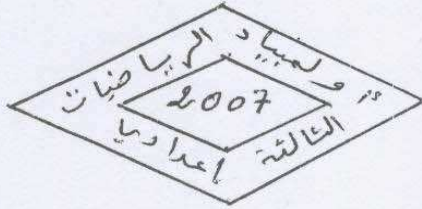 أولمبياد الرياضيات
2007
الثالثة إعداديا